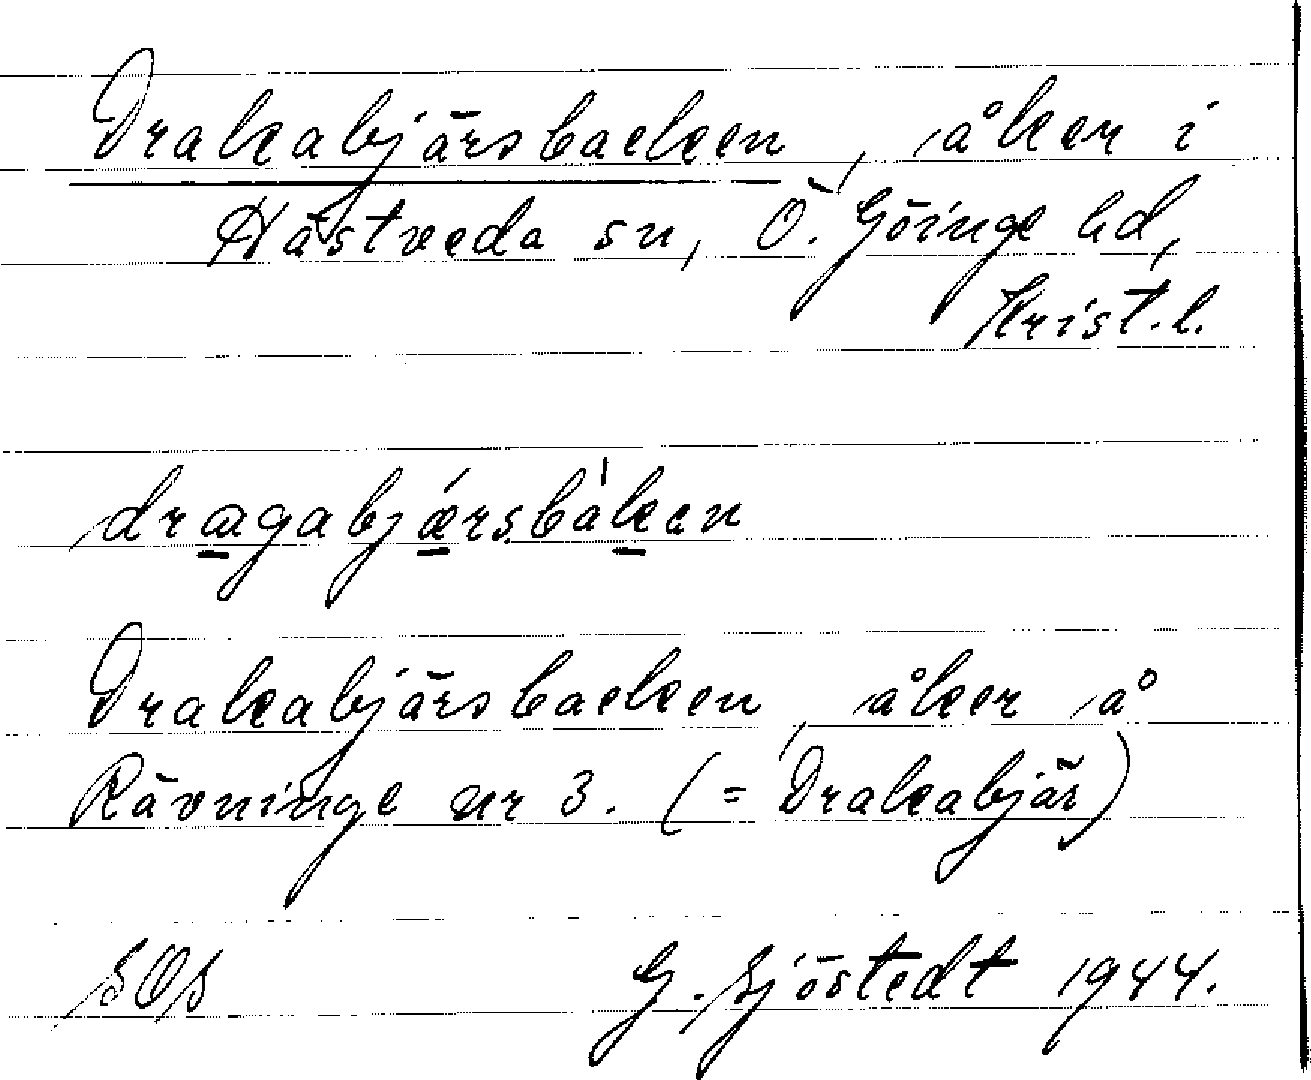 Drakabjärsbacken, åker i
Hästveda sn, Ö. Göinge hd,
Krist.l.
dragabjǽrsbàken
Drakabjärsbacken, åker å
Rävninge nr 3. (= Drakabjär)
SOS G. Sjöstedt 1944.